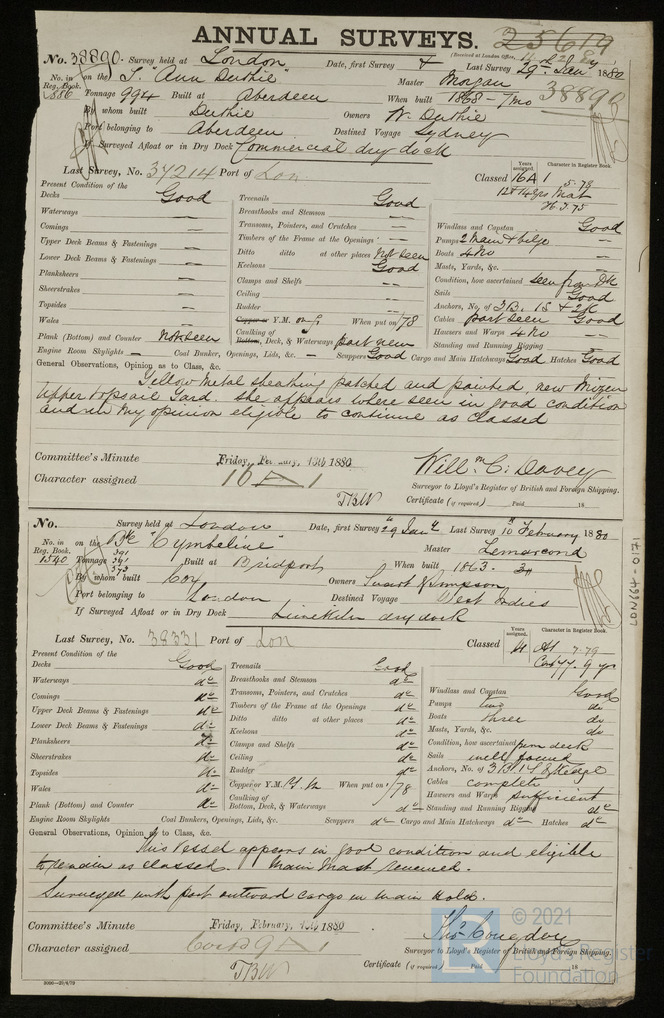 ANNUAL SURVEYS. 25619
(Received at London Office,
No. 38890. Survey held at London Date, first Survey 4 Last Survey 29th Jany 1880
No. in Reg. Book. on the S. "Ann Duthie" Master Morgan
886 Tonnage 994 Built at Aberdeen When built 1868 - 7 mo 38890
By whom built Duthie Owners W. Duthie
Port belonging to Aberdeen Destined Voyage Sydney
If Surveyed Afloat or in Dry Dock Commercial dry dock
Last Survey, No. 37214 Port of Lon Classed 16 A 1
Years assigned. Character in Register Book.
5.79
Present Condition of the
Decks Good Treenails Good
Waterways — Breasthooks and Stemson — Windlass and Capstan Good
Comings — Transoms, Pointers, and Crutches — Pumps 2 Main & bilge —
Upper Deck Beams & Fastenings — Timbers of the Frame at the Openings — Boats 4 No —
Lower Deck Beams & Fastenings — Ditto ditto at other places Not seen Masts, Yards, &c. —
Planksheers — Keelsons Good Condition, how ascertained seen from Dk
Sheerstrakes — Clamps and Shelfs — Sails Good
Topsides — Ceiling — Anchors, No. of 3 B. 1 S & 2 K
Wales — Rudder — Cables part seen Good
Plank (Bottom) and Counter Not seen Copper or Y.M. on When put on /78 Hawsers and Warps 4 No —
Caulking of Bottom, Deck, & Waterways part new Standing and Running Rigging
Engine Room Skylights — Coal Bunker, Openings, Lids, &c. — Scuppers Good Cargo and Main Hatchways Good Hatches Good
General Observations, Opinion as to Class, &c.
Yellow metal sheathing patched and painted, new Mizen
Upper Topsail Yard. She appears where seen in good condition
and in my opinion eligible to continue as classed
Committee's Minute Friday, February, 13th 1880
Character assigned 16 A 1 Willm C. Davey
Surveyor to Lloyd's Register of British and Foreign Shipping.
TBW Certificate (if required) Paid 18
No. Survey held at London Date, first Survey 29 Jany Last Survey 10th February 1880
No. in Reg. Book. on the Bk "Cymbeline" Master Lemarcond
1540 Tonnage 391 373 Built at Bridport When built 1863.
By whom built Cox Owners
Port belonging to London Destined Voyage West Indies
If Surveyed Afloat or in Dry Dock Limekiln dry dock
Last Survey, No. 38331 Port of Lon Classed
Years assigned. Character in Register Book.
7.79
Cont 77. 9 yrs
Present Condition of the
Decks Good Treenails Good
Waterways do Breasthooks and Stemson do Windlass and Capstan Good
Comings do Transoms, Pointers, and Crutches do Pumps two do
Upper Deck Beams & Fastenings do Timbers of the Frame at the Openings do Boats three do
Lower Deck Beams & Fastenings do Ditto ditto at other places do Masts, Yards, &c. do
Planksheers do Keelsons do Condition, how ascertained from deck
Sheerstrakes do Clamps and Shelfs do Sails well found
Topsides do Ceiling do Anchors, No. of
Wales do Rudder do Cables complete
Plank (Bottom) and Counter do Copper or Y.M. Y. M When put on /78 Hawsers and Warps sufficient
Caulking of Bottom, Deck, & Waterways do Standing and Running Rigging do
Engine Room Skylights Coal Bunkers, Openings, Lids, &c. Scuppers do Cargo and Main Hatchways do Hatches do
General Observations, Opinion as to Class, &c.
This Vessel appears in good condition and eligible
to remain as classed. Main Mast renewed.
Surveyed with part outward cargo in Main Hold.
Committee's Minute Friday, February, 13th 1880
Character assigned Contd 9 A 1 Thos Congdon
Surveyor to Lloyd's Register of British and Foreign Shipping.
TBW Certificate (if required) Paid 18
LON884-0171
© 2021
Lloyd's Register
Foundation